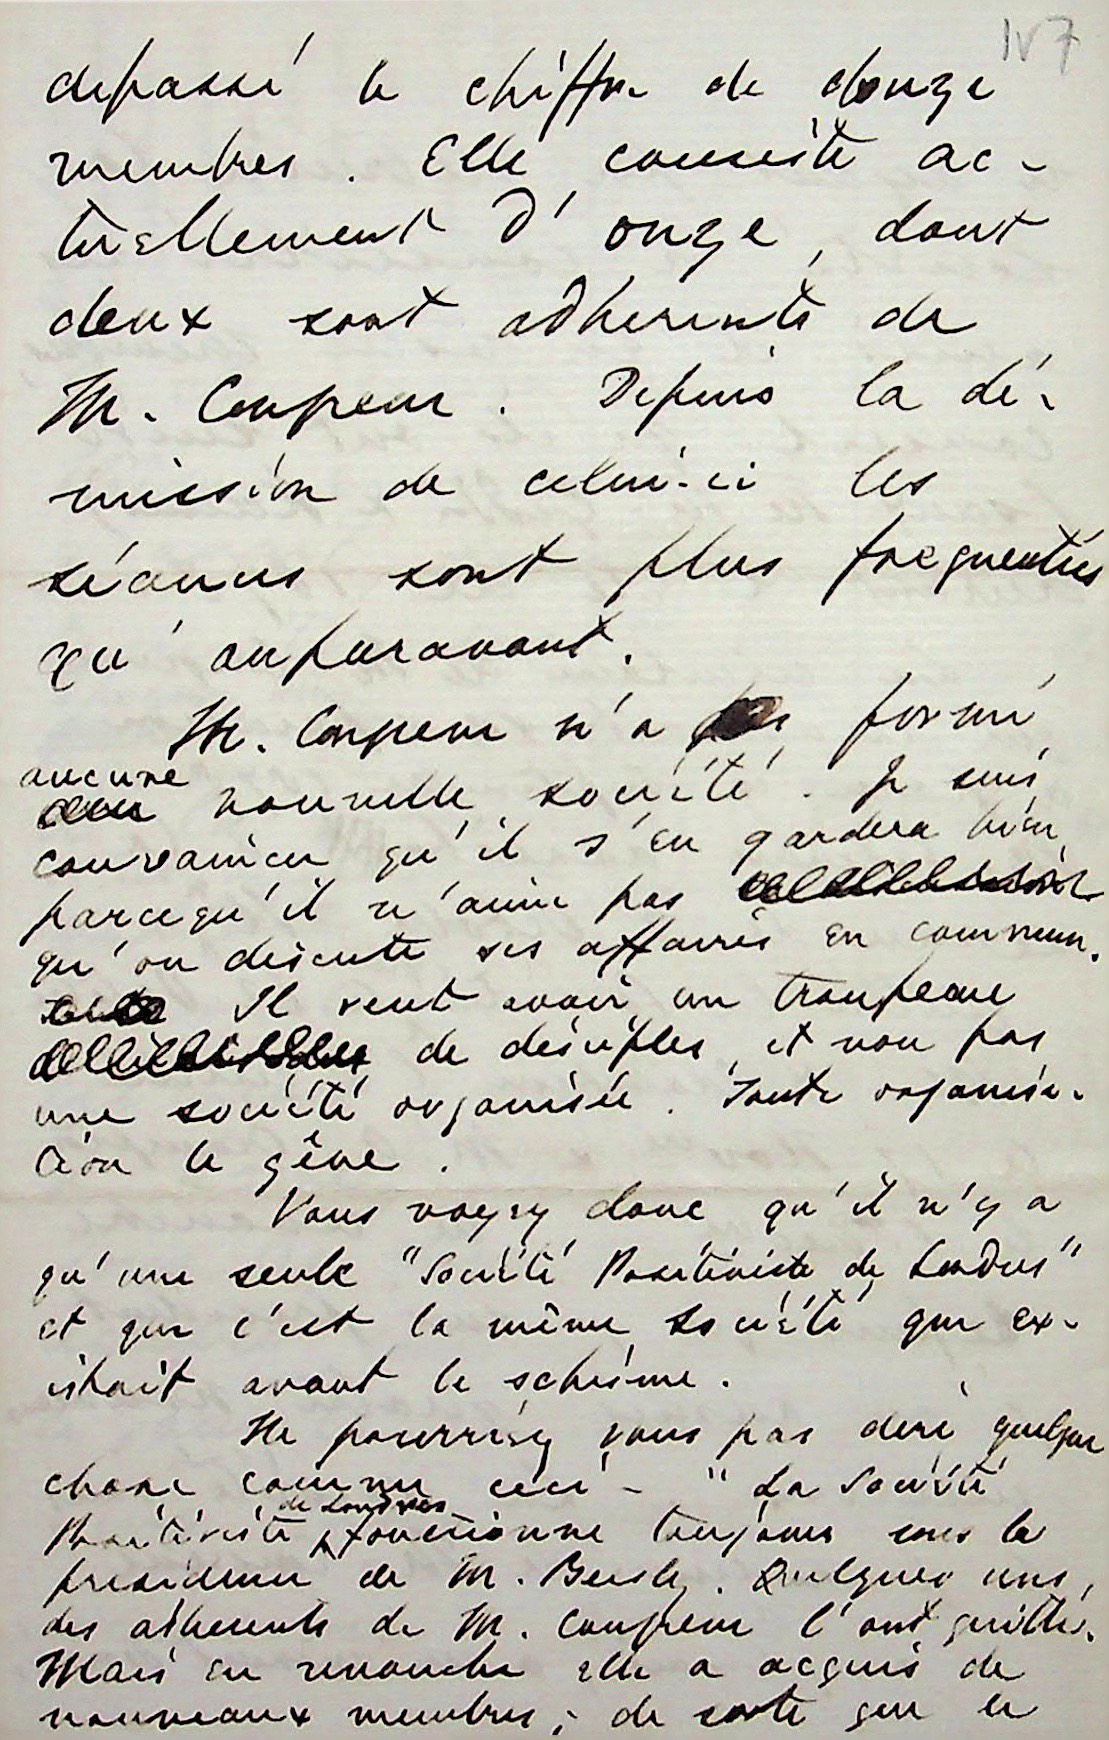 157
depassé le chiffre de douze
membres. Elle consiste ac-
tuellement d'onze, dont
deux sont adherents de
M. Congreve. Depuis la dé-
mission de celui-ci les
séances sont plus frequentées
qu'auparavant.
M. Congreve n'a pas formé
aucune
nouvelle société. Je suis
convaincu qu'il s'en gardera bien,
parcequ'il n'aime pas
qu'on discute ses affaires en commun.
Il veut avoir un troupeau
de disciples, et non pas
une société organisée. Toute organisa-
tion le gêne.
Vous voyez donc qu'il n'y a
qu'une seule "Société Positiviste de Londres"
et que c'est la même société qui ex-
istait avant le schisme.
Ne pourriez vous pas dire quelque
chose comme ceci - "La Société
de Londres
Positiviste fonctionne toujours sous la
presidence de M. Beesly. Quelques uns,
des adherents de M. Congreve l'ont quittée.
Mais en revanche elle a acquis de
nouveaux membres; de sorte que le